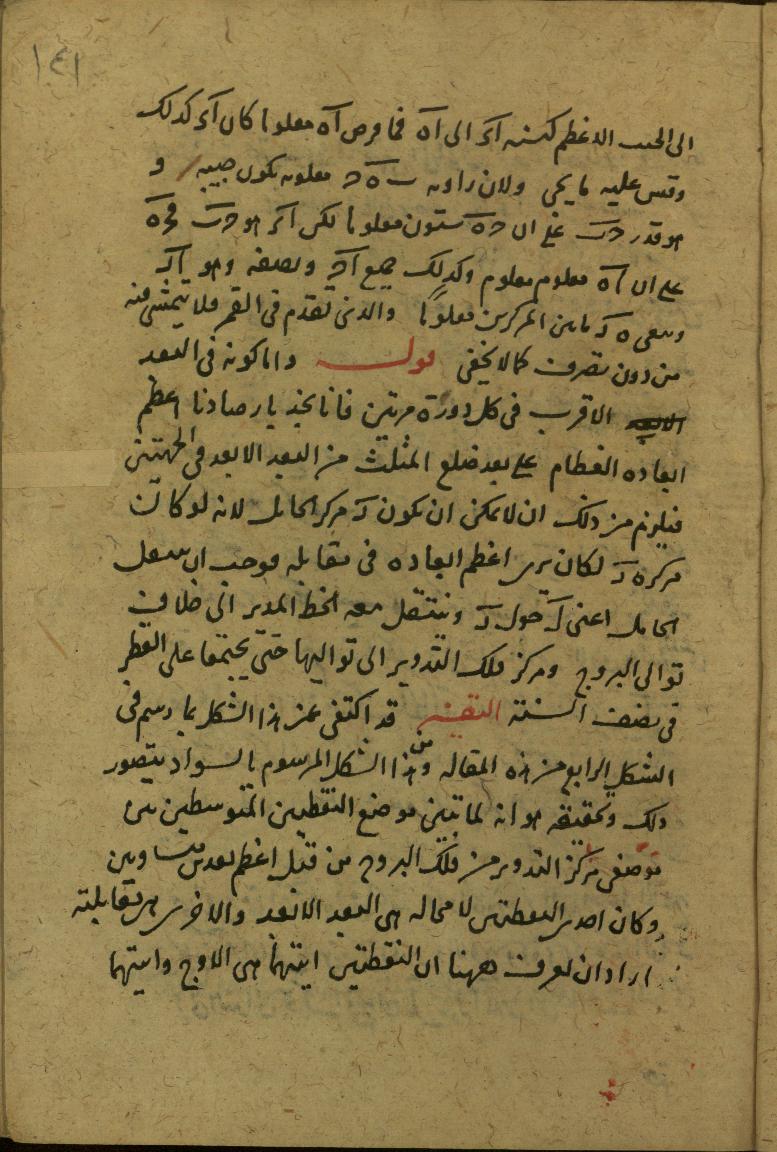 ١٤١
الى الجيب الاعظم كنسبة آكر الى آه فما فرض آه معلوما كان آكر كذلك
وقس عليه ما يجئ ولان زاوية معلومة يكون جيبه و
هو قدر على ان ستون معلوما لكن
على ان آه معلوم معلوم وكذلك جميع ونصفه وهو
ويبقى ه د ما بين المركزين معلوما والذى تقدم فى القمر فلا يتمشى منه
من دون تصرف كما لا يخفى قوله واما كونه فى البعد
الاقرب فى كل دورة مرتين فانا نجد بارصادنا اعظم
ابعاده العظام على بعد ضلع المثلث من البعد الابعد فى الجهتين
فيلزم من ذلك ان لا يمكن ان يكون د مركز الحامل لانه لو كانت
مركزه د لكان يرى اعظم ابعاده فى مقابله فوجب ان ينتقل
الحامل اعنى حول د وينتقل معه الخط المدير الى خلاف
توالى البروج ومركز فلك التدوير الى تواليها حتى يجتمعا على القطر
فى نصف السنة التفسير قد اكتفى عن هذا الشكل بما رسم فى
الشكل الرابع من هذه المقالة ومن هذا الشكل المرسوم بالسواد يتصور
ذلك وتحقيقه هو انه لما تبين موضع النقطتين المتوسطتين بين
موضعى مركز التدوير من فلك البروج من قبل اعظم بعدين متساويين
وكان احدى النقطتين لا محالة هى البعد الابعد والاخرى هى مقابلته
اراد ان يعرف ههنا ان النقطتين ايتهما هى الاوج وايتهما